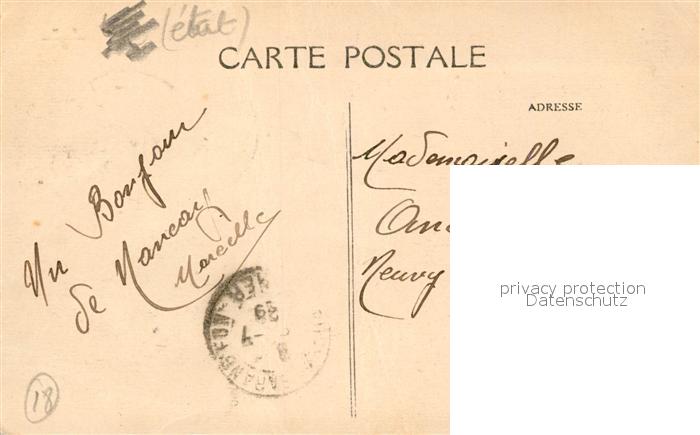 (état)
CARTE POSTALE
ADRESSE
Un Bonjour
de Nançay
Marcelle
Mademoiselle
Neuvy
privacy protection
Datenschutz
CHER
39
-7
18